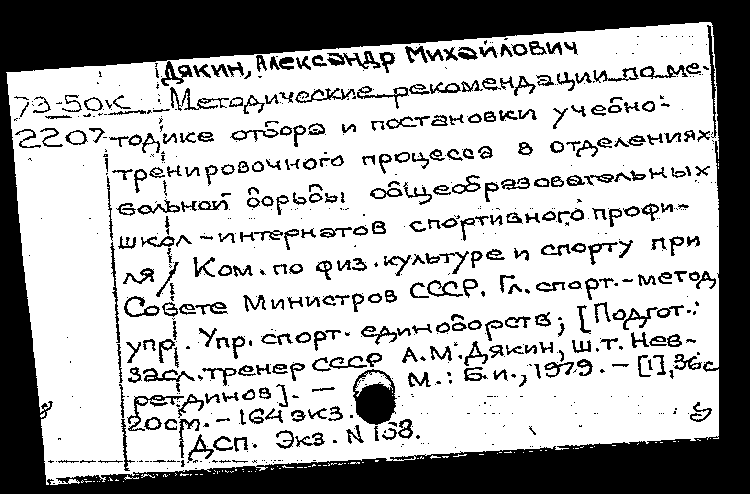 Дякин, Александр Михайлович
79-50К Методические рекомендации по ме-
2207 тодике отбора и постановки учебно-
тренировочного процесса в отделениях
вольной борьбы общеобразовательных
школ-интернатов спортивного профи-
ля / Ком. по физ. культуре и спорту при
Совете Министров СССР. Гл. спорт.-метод.
упр. Упр. спорт. единоборств; [Подгот.:
засл. тренер СССР А.М. Дякин, Ш.Т. Нев-
ретдинов]. – М.: Б.и., 1979. – [1], 36с
20см. – 164 экз.
ДСП. Экз. N 138.